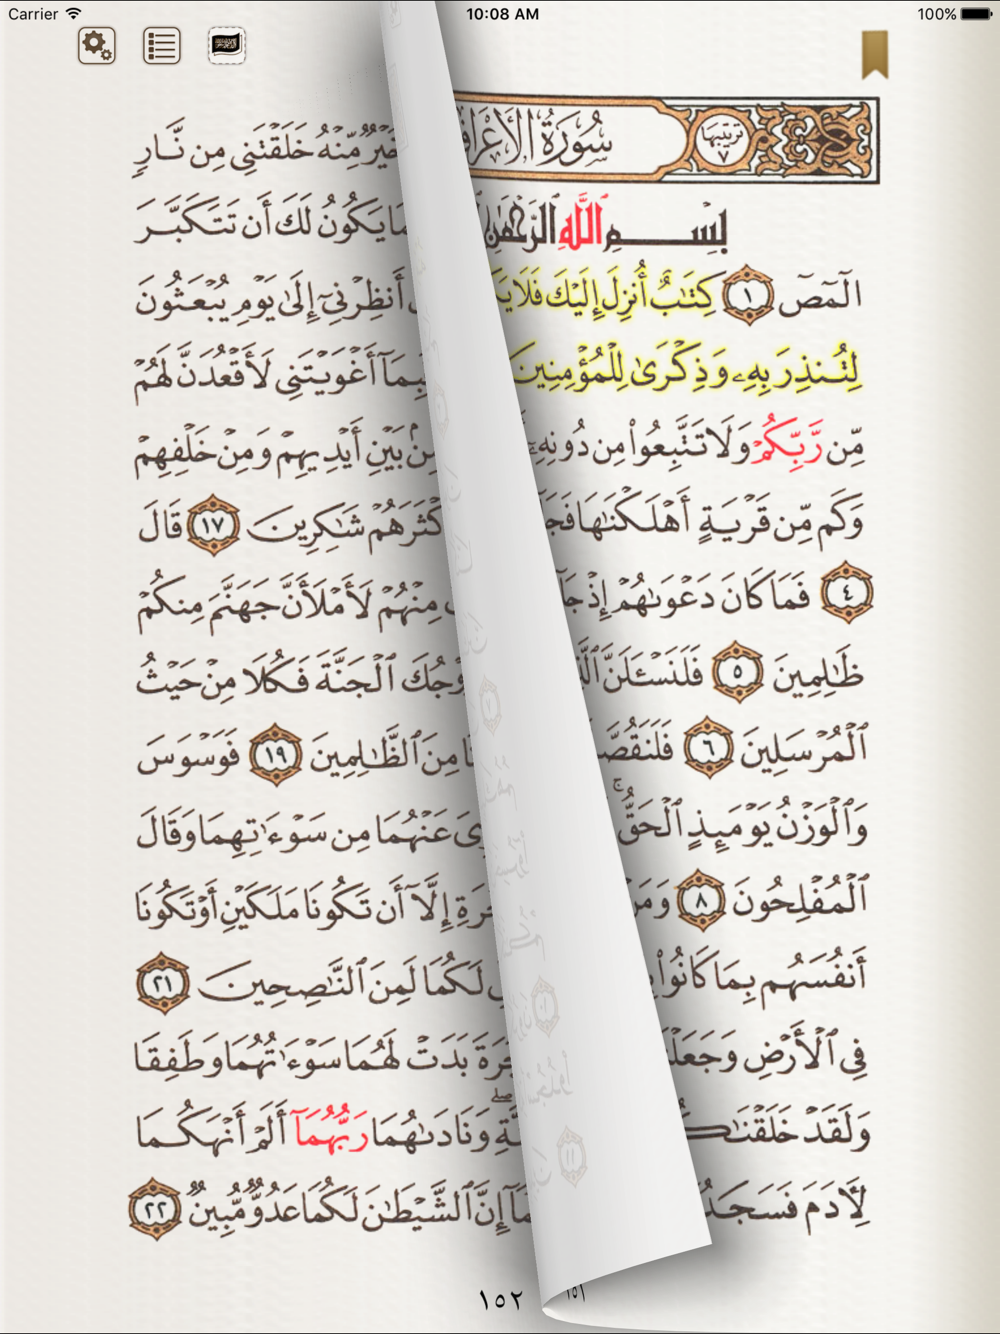 Carrier 10:08 AM 100%
سُورَةُ الأَعْرَاف
تَرْتِيبُهَا ٧
بِسْمِ ٱللَّهِ ٱلرَّحْمَٰنِ
الٓمٓصٓ ١ كِتَٰبٌ أُنزِلَ إِلَيْكَ فَلَا
لِتُنذِرَ بِهِۦ وَذِكْرَىٰ لِلْمُؤْمِنِينَ
مِّن رَّبِّكُمْ وَلَا تَتَّبِعُوا۟ مِن دُونِهِۦٓ
وَكَم مِّن قَرْيَةٍ أَهْلَكْنَٰهَا
٤ فَمَا كَانَ دَعْوَىٰهُمْ إِذْ
ظَٰلِمِينَ ٥ فَلَنَسْـَٔلَنَّ
ٱلْمُرْسَلِينَ ٦
وَٱلْوَزْنُ يَوْمَئِذٍ ٱلْحَقُّ ۚ
ٱلْمُفْلِحُونَ ٨
أَنفُسَهُم بِمَا كَانُوا۟
فِى ٱلْأَرْضِ
وَلَقَدْ خَلَقْنَٰكُ
لِءَادَمَ
١٥١
خَيْرٌ مِّنْهُ خَلَقْتَنِى مِن نَّارٍ
يَكُونُ لَكَ أَن تَتَكَبَّرَ
أَنظِرْنِىٓ إِلَىٰ يَوْمِ يُبْعَثُونَ
فَبِمَآ أَغْوَيْتَنِى لَأَقْعُدَنَّ لَهُمْ
مِّنۢ بَيْنِ أَيْدِيهِمْ وَمِنْ خَلْفِهِمْ
شَٰكِرِينَ ١٧ قَالَ
مِنْهُمْ لَأَمْلَأَنَّ جَهَنَّمَ مِنكُمْ
ٱلْجَنَّةَ فَكُلَا مِنْ حَيْثُ
مِنَ ٱلظَّٰلِمِينَ ١٩ فَوَسْوَسَ
عَنْهُمَا مِن سَوْءَٰتِهِمَا وَقَالَ
إِلَّآ أَن تَكُونَا مَلَكَيْنِ أَوْ تَكُونَا
لَكُمَا لَمِنَ ٱلنَّٰصِحِينَ ٢١
بَدَتْ لَهُمَا سَوْءَٰتُهُمَا وَطَفِقَا
وَنَادَىٰهُمَا رَبُّهُمَآ أَلَمْ أَنْهَكُمَا
إِنَّ ٱلشَّيْطَٰنَ لَكُمَا عَدُوٌّ مُّبِينٌ ٢٢
١٥٢